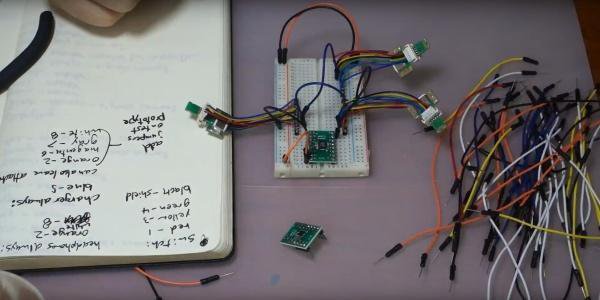 Switch:
red - 1
yellow - 3
green - 4
black - shield
headphones always:
orange - 2
white - 8
charger always:
blue - 5
can also leave attach
orange - 2
magenta - 6
gray - 7
white - 8
add
jumpers
to test
prototype